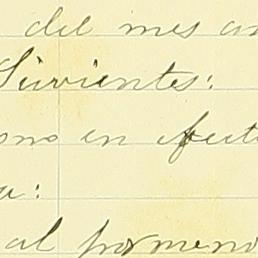 del mes an
Sirvientes:
ono en efecti
a:
al pormeno